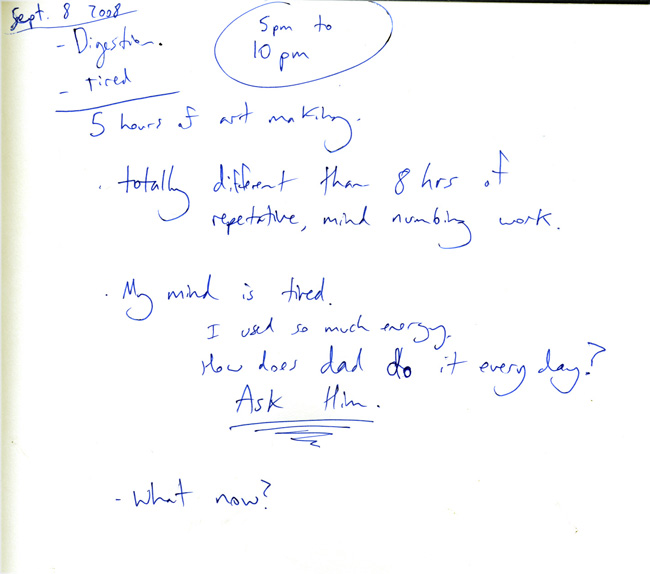 Sept. 8 2008
- Digestion.
- tired
5pm to
10 pm
5 hours of art making.
. totally different than 8 hrs of
repetative, mind numbing work.
. My mind is tired.
I used so much energy.
How does dad do it every day?
Ask Him.
- What now?